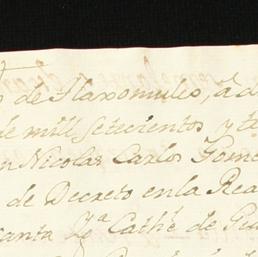 de Tlaxomulco, a d
de mill setecientos y t
n Nicolas Carlos Gome
de Decreto en la Rea
anta Yg.ª Cath.l de Gu